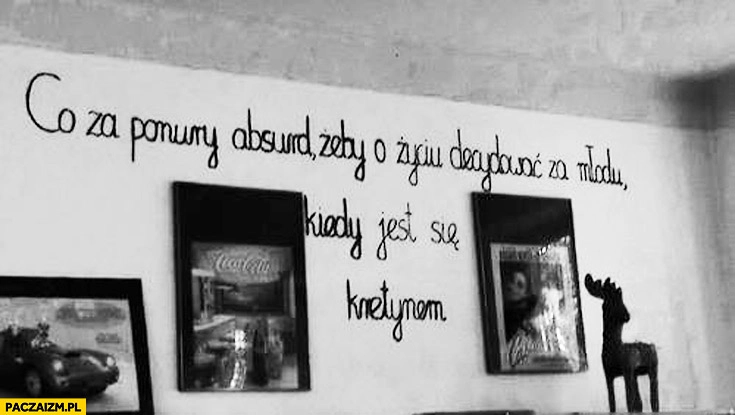 Co za ponury absurd, żeby o życiu decydować za młodu,
kiedy jest się
kretynem
Coca-Cola
PACZAIZM.PL